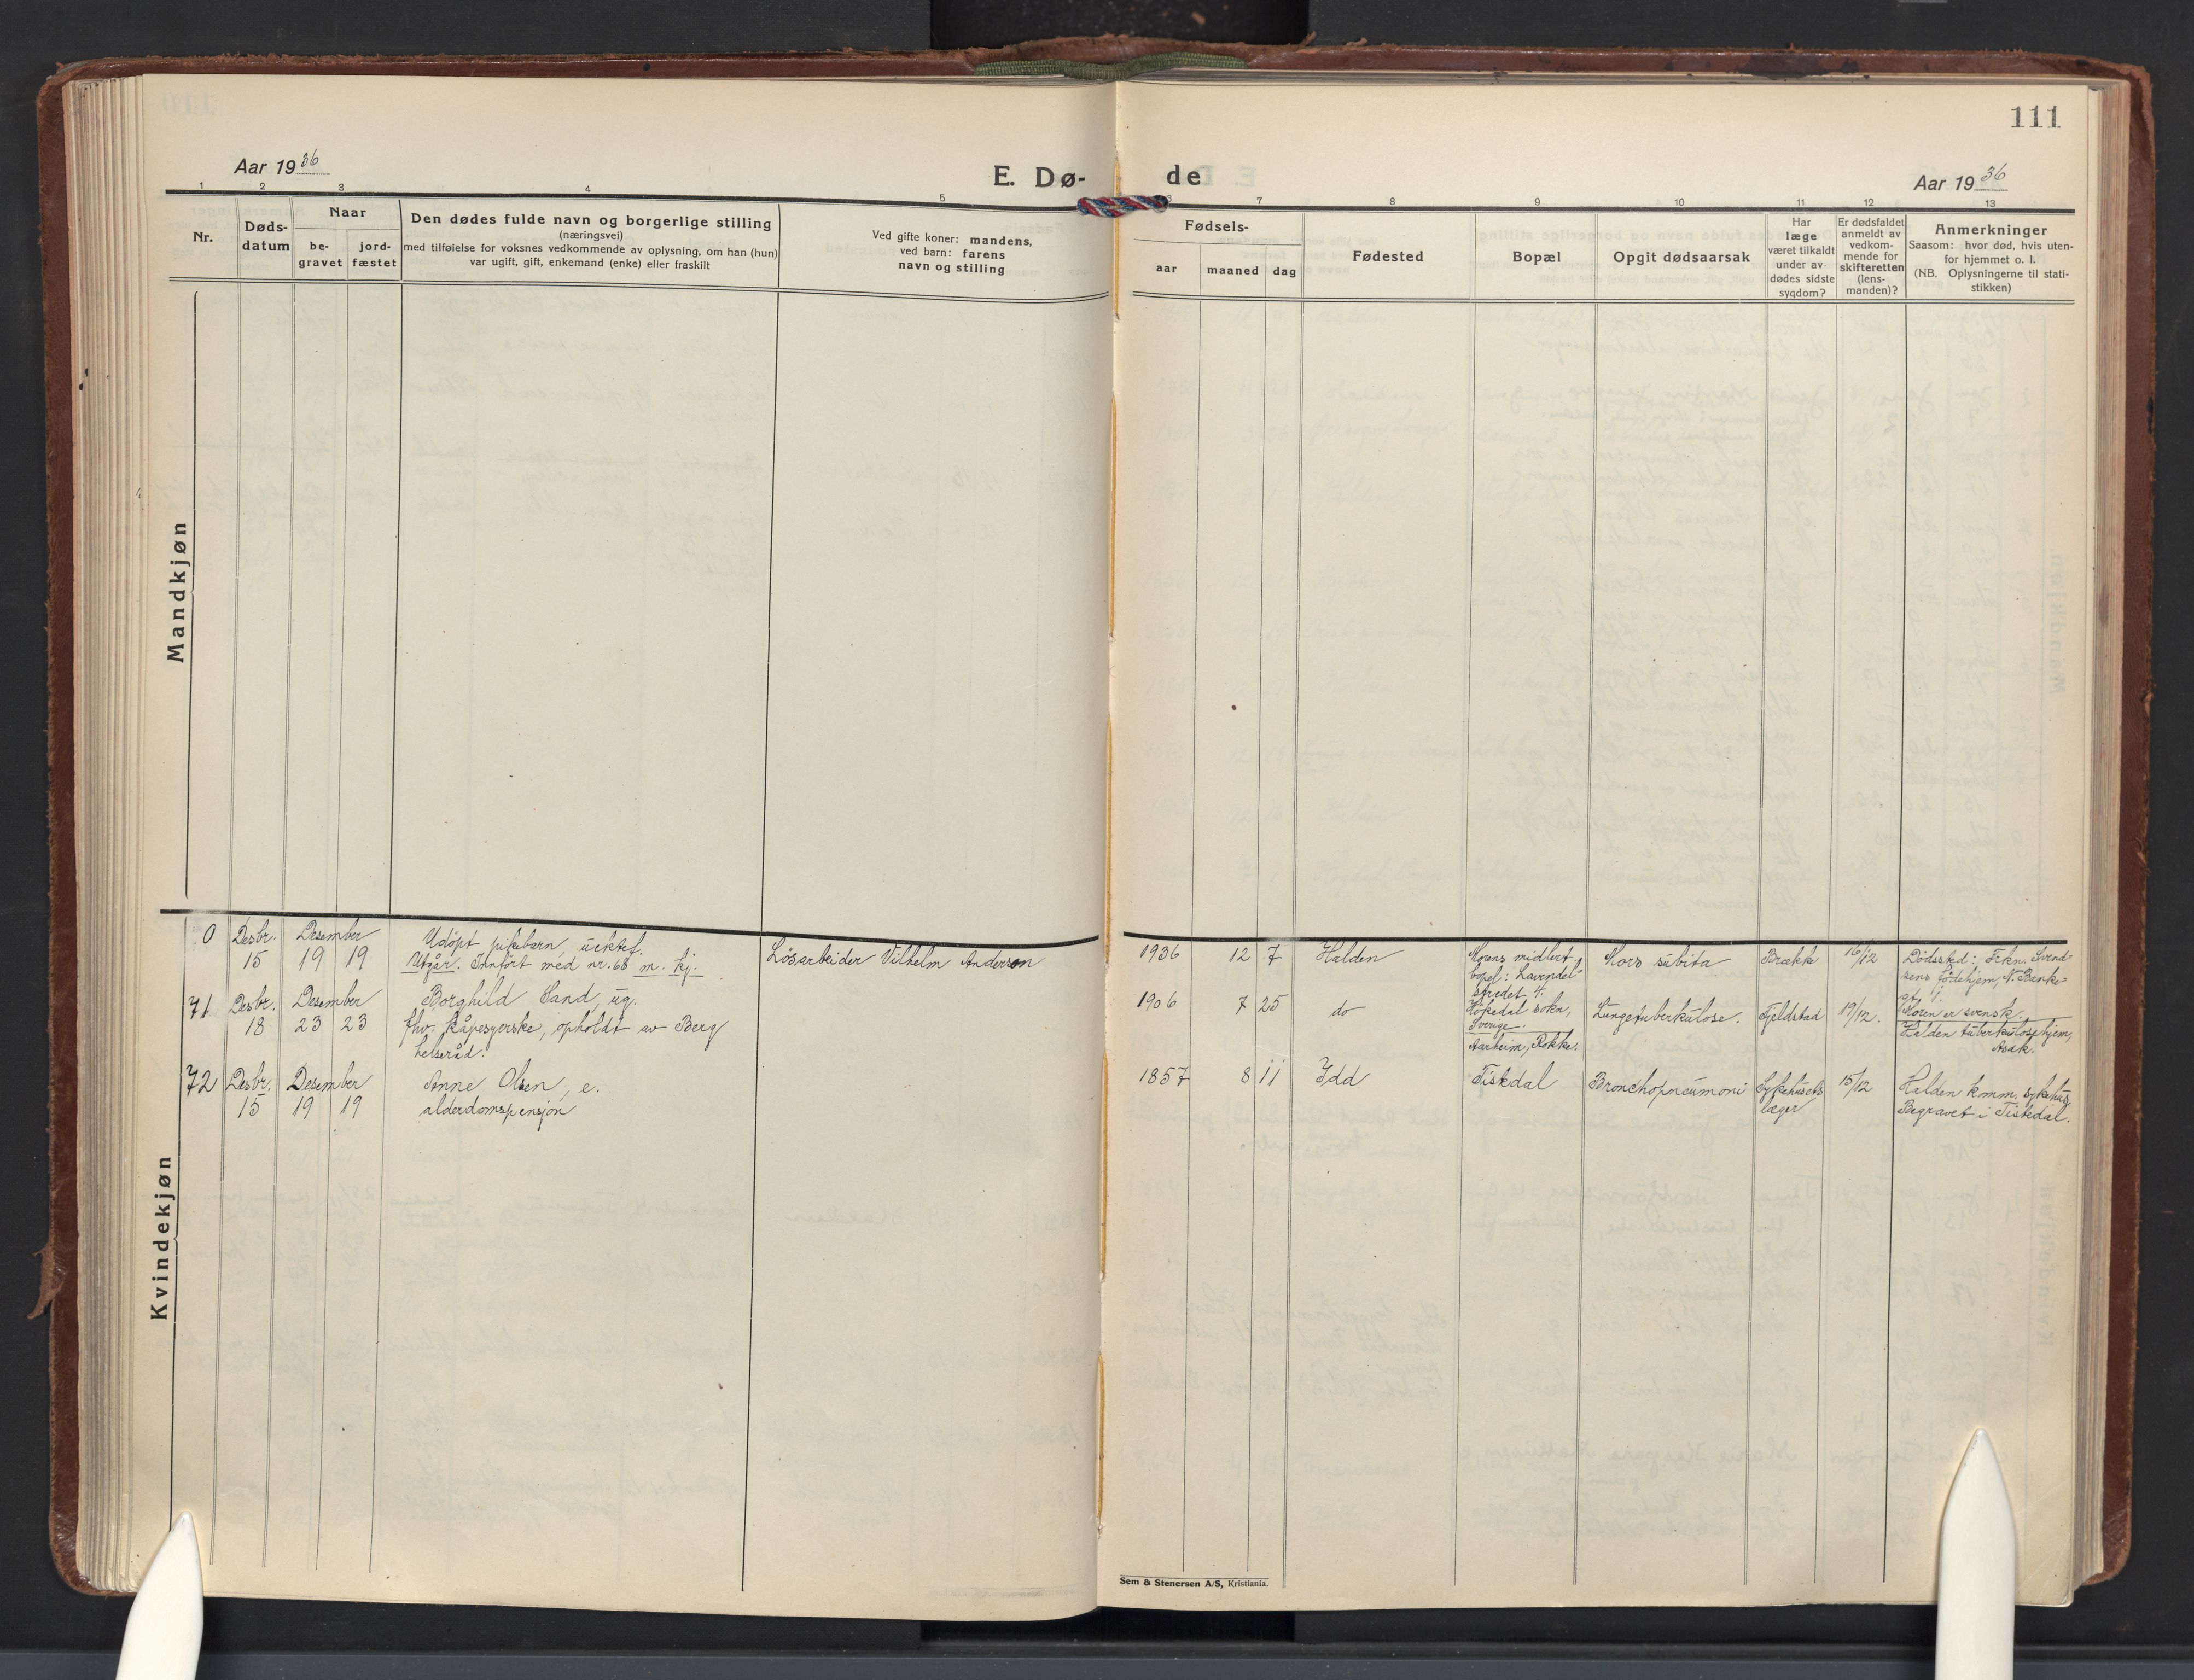 111
Aar 1936
E. Dø-
de
Aar 1936
1 2 3 4 5 6 7 8 9 10 11 12 13
Nr.
Døds-
datum
Naar
be-
gravet
jord-
fæstet
Den dødes fulde navn og borgerlige stilling
(næringsvei)
med tilføielse for voksnes vedkommende av oplysning, om han (hun)
var ugift, gift, enkemand (enke) eller fraskilt
Ved gifte koner: mandens,
ved barn: farens
navn og stilling
Fødsels-
aar
maaned
dag
Fødested
Bopæl
Opgit dødsaarsak
Har
læge
været tilkaldt
under av-
dødes sidste
sygdom?
Er dødsfaldet
anmeldt av
vedkom-
mende for
skifteretten
(lens-
manden)?
Anmerkninger
Saasom: hvor død, hvis uten-
for hjemmet o. l.
(NB. Oplysningerne til stati-
stikken)
Mandkjøn
Kvindekjøn
0
Desbr.
15
Desember
19 19
Udöpt pikebarn, uektef.
Utgår. Innfört med nr. 68 m. kj.
Lösarbeider Vilhelm Anderson
1936 12 7
Halden
Morens midlert.
bopel: Lavendel-
stredet 4.
Hökedal sokn,
Sverige.
Mors subita
Brække
16/12
Dödssted: Frkn. Svend-
sens födehjem, N. Banke-
gt. 1.
Moren er svensk.
71
Desbr.
18
Desember
23 23
Borghild Sand, ug.
fhv. kåpesyerske, opholdt av Berg
helseråd.
1906 7 25
do
Aarheim, Rokke.
Lungetuberkulose.
Fjeldstad
19/12.
Halden tuberkulosehjem,
Asak.
72
Desbr.
15
Desember
19 19
Anne Olsen, e.
alderdomspensjon
1857 8 11
Idd
Tistedal
Bronchopneumoni
Sykehusets
læger
15/12
Halden komm. sykehus
Begravet i Tistedal.
Sem & Stenersen A/S, Kristiania.